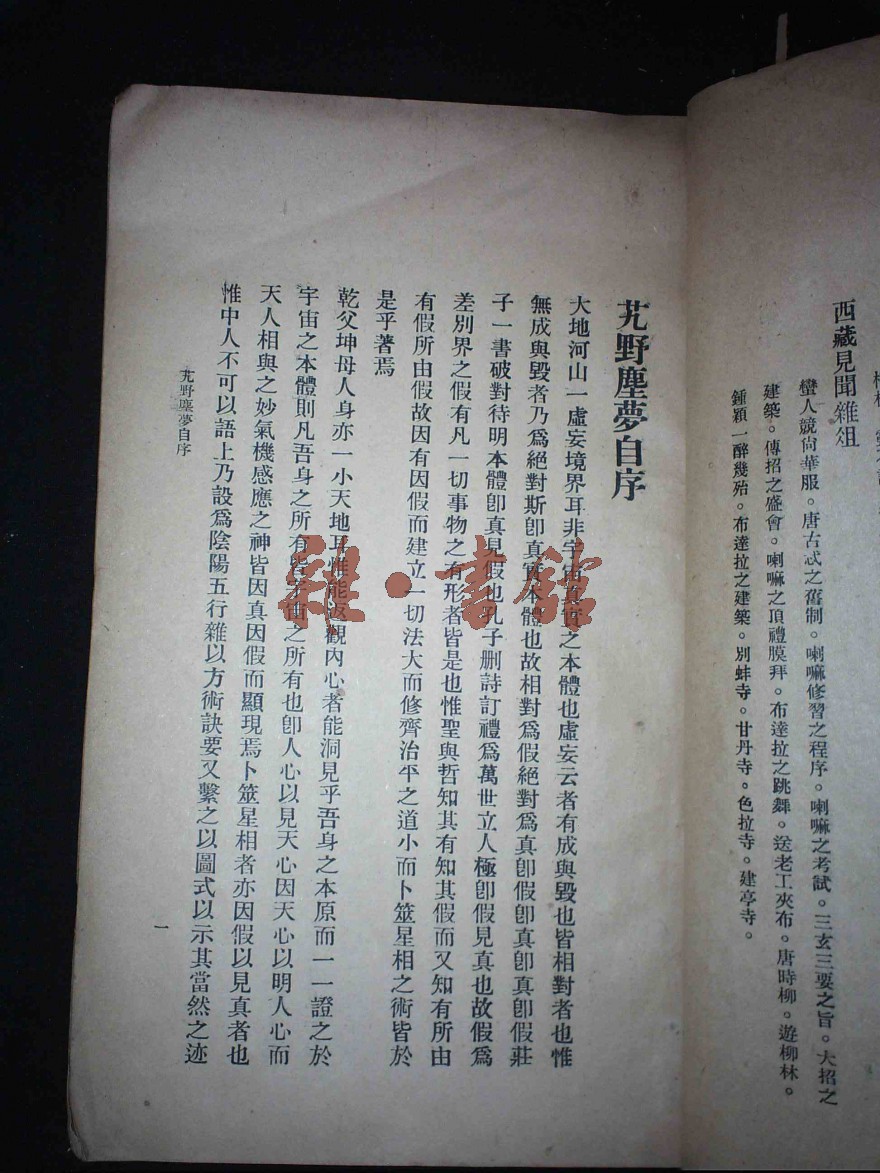 西藏見聞雜俎
蠻人競尙華服。唐古忒之舊制。喇嘛修習之程序。喇嘛之考試。三玄三要之旨。大招之
建築。傳招之盛會。喇嘛之頂禮膜拜。布達拉之跳舞。送老工夾布。唐時柳。遊柳林。
鍾穎一醉幾殆。布達拉之建築。別蚌寺。甘丹寺。色拉寺。建亭寺。
艽野塵夢自序
大地河山一虛妄境界耳非宇宙真實之本體也虛妄云者有成與毀也皆相對者也惟
無成與毀者乃爲絕對斯卽真實本體也故相對爲假絕對爲真卽假卽真卽真卽假莊
子一書破對待明本體卽真見假也孔子删詩訂禮爲萬世立人極卽假見真也故假爲
差別界之假有凡一切事物之有形者皆是也惟聖與哲知其有知其假而又知有所由
有假所由假故因有因假而建立一切法大而修齊治平之道小而卜筮星相之術皆於
是乎著焉
乾父坤母人身亦一小天地耳惟能返觀內心者能洞見乎吾身之本原而一一證之於
宇宙之本體則凡吾身之所有皆宇宙之所有也卽人心以見天心因天心以明人心而
天人相與之妙氣機感應之神皆因真因假而顯現焉卜筮星相者亦因假以見真者也
惟中人不可以語上乃設爲陰陽五行雜以方術訣要又繫之以圖式以示其當然之迹
艽野塵夢自序
一
雜·書館